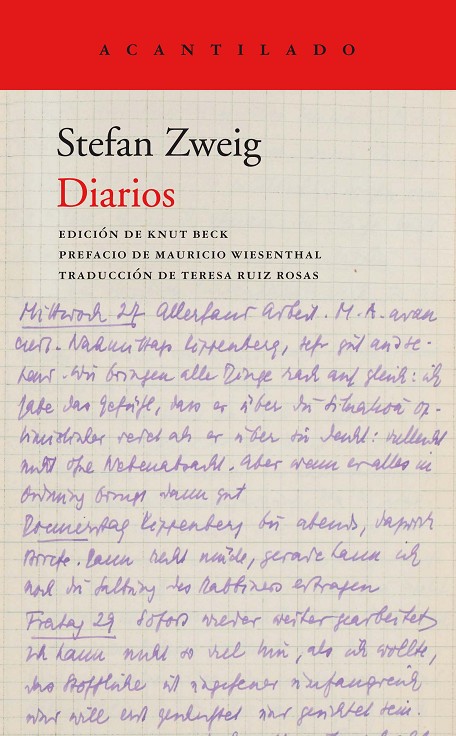 ACANTILADO
Stefan Zweig
Diarios
EDICIÓN DE KNUT BECK
PREFACIO DE MAURICIO WIESENTHAL
TRADUCCIÓN DE TERESA RUIZ ROSAS
Mittwoch 27 Allerhand Arbeit. M. A. avan
ciert. Nachmittags Kippenberg, sehr gut und
Wir bringen alle Dinge rasch auf gleich: ich
habe das Gefühl, dass er über die Situation op-
timistischer redet als er über sie denkt: vielleicht
nicht ohne Nebenabsicht. Aber wenn er alles in
Ordnung bringt dann gut
Donnerstag Kippenberg bis abends, dazwischen
Briefe. Dann recht müde, gerade kann ich
noch die des Rabbiners ertragen
Freitag 29 Sofort wieder weiter gearbeitet
Ich kann nicht so viel tun, als ich wollte,
das Stoffliche ist ungeheuer umfangreich
und will erst gesichtet sein.